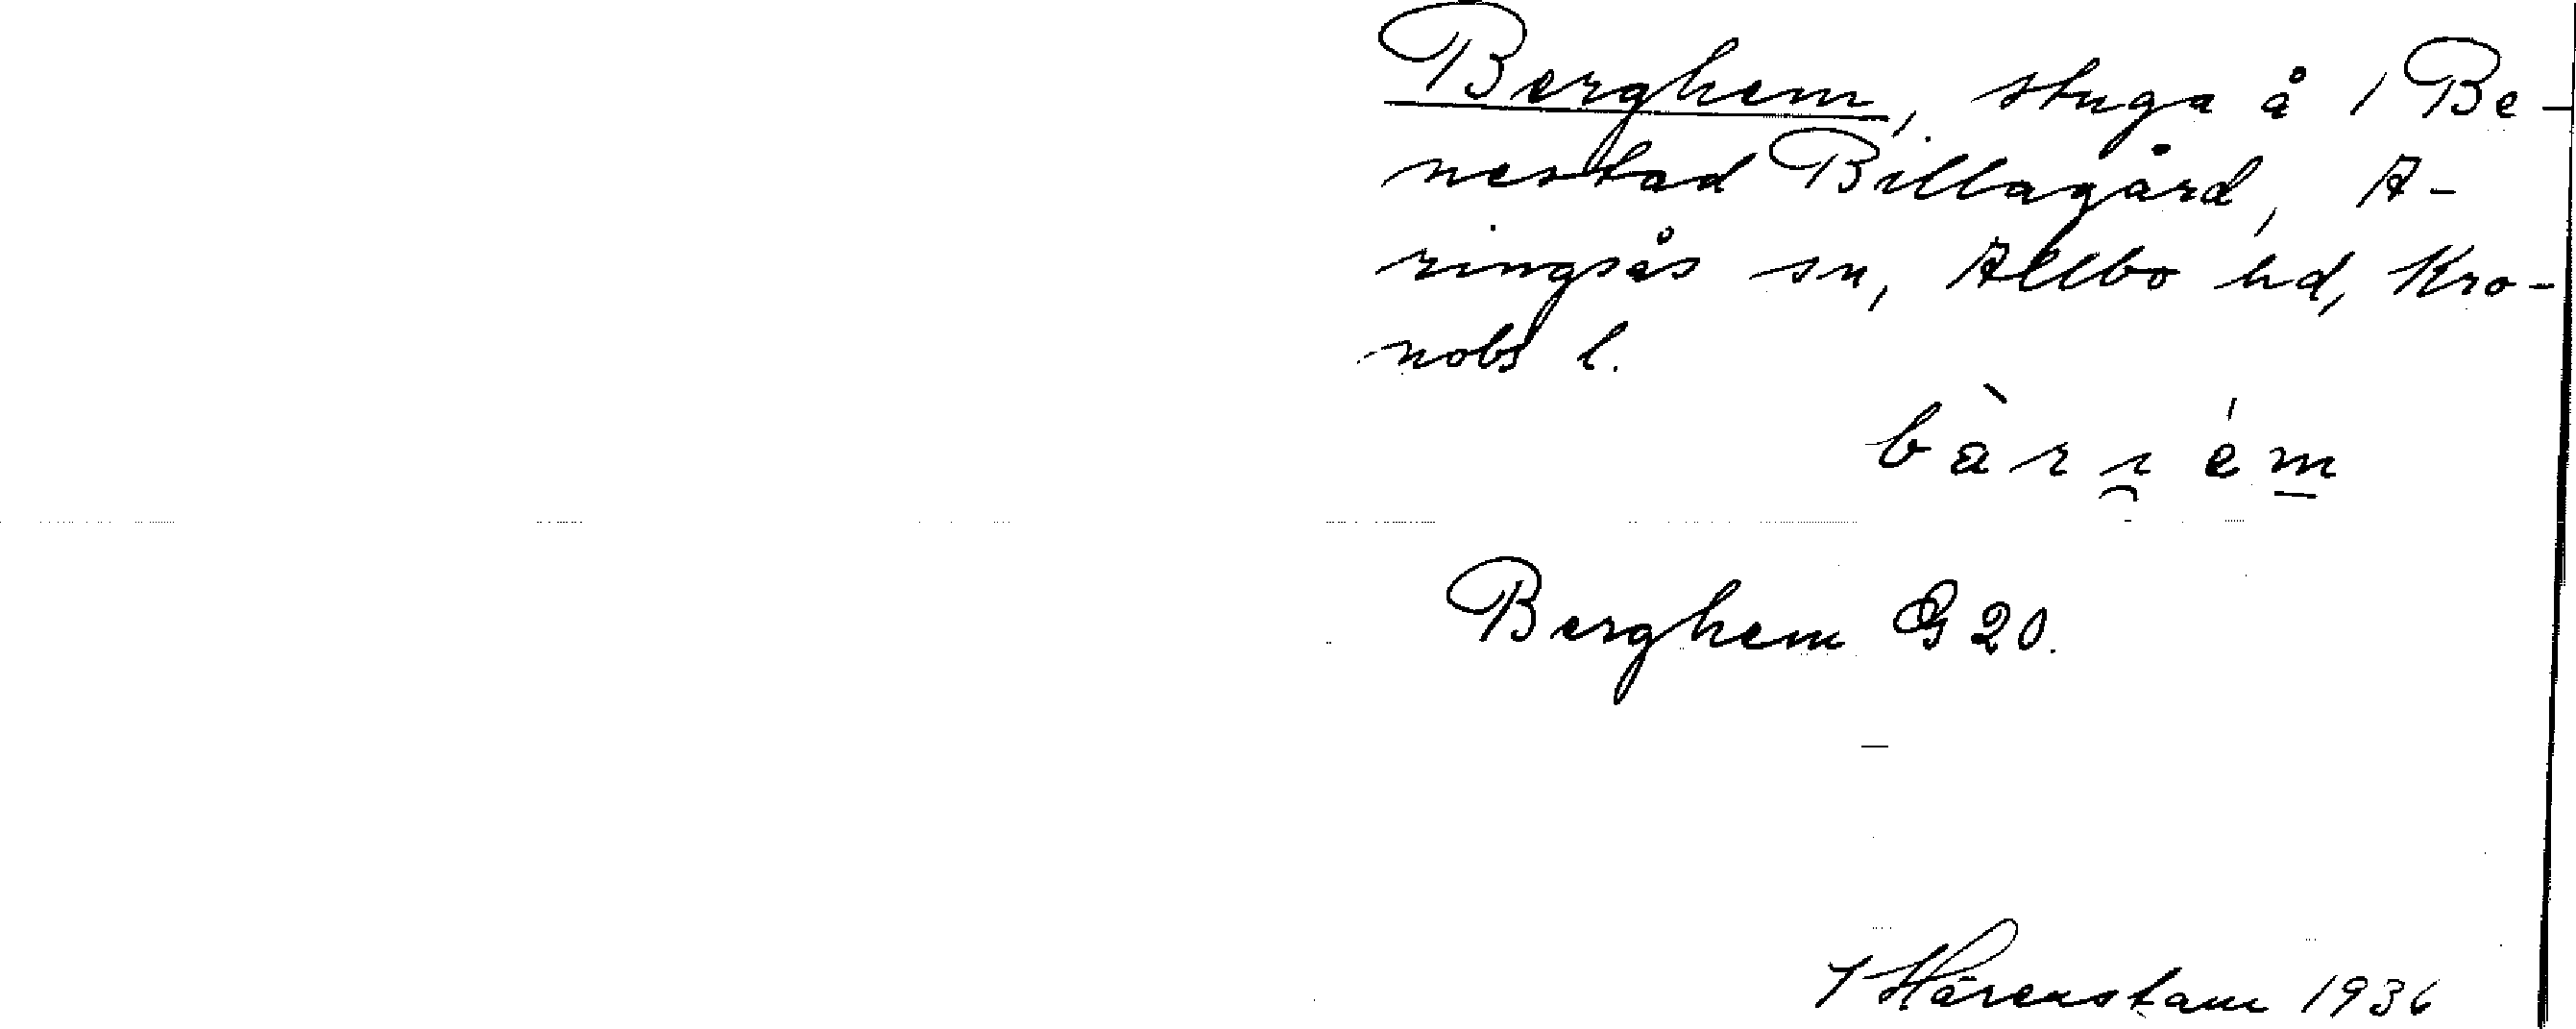 Berghem, stuga å 1 Be-
nestad Billagård, A-
ringsås sn, Allbo hd, Kro-
nobs l.
bàrı̯ém̲
Berghem G 20.
Y Härenstam 1936